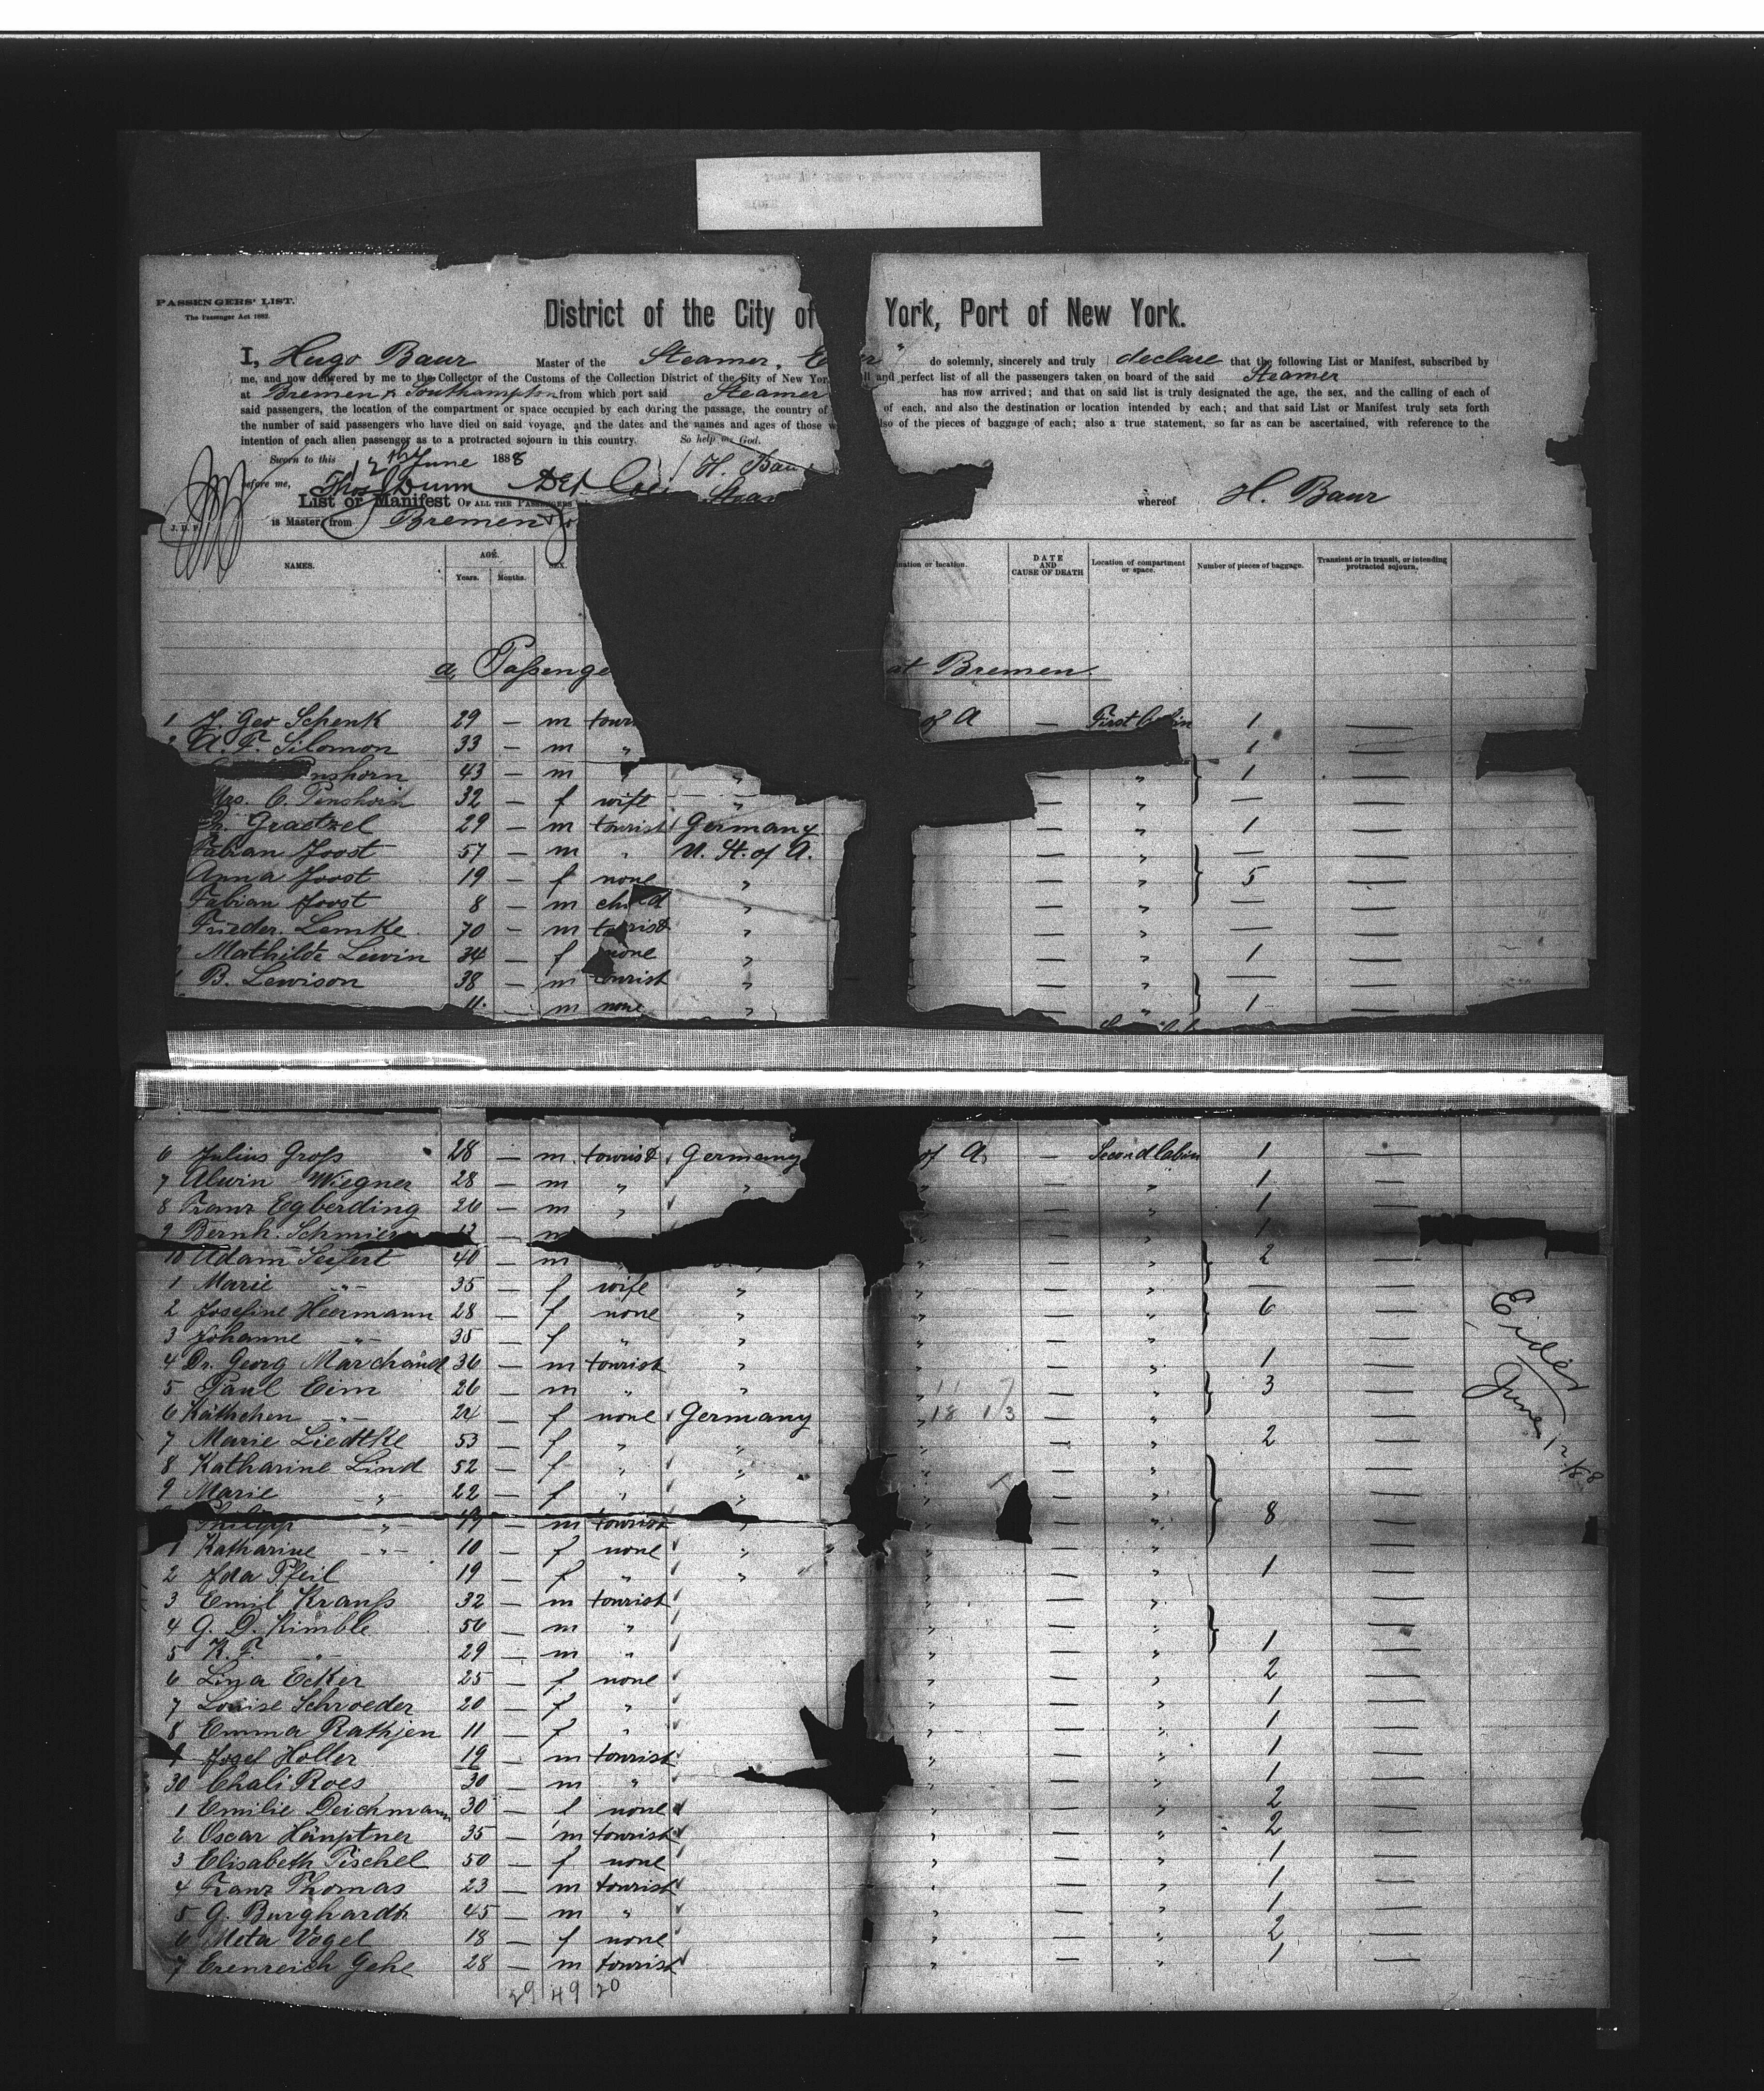 PASSENGERS' LIST.
The Passenger Act 1882.
District of the City of York, Port of New York.
I, Hugo Baur Master of the Steamer, do solemnly, sincerely and truly declare that the following List or Manifest, subscribed by
me, and now delivered by me to the Collector of the Customs of the Collection District of the City of New and perfect list of all the passengers taken on board of the said Steamer
at Bremen & Southampton from which port said Steamer has now arrived; and that on said list is truly designated the age, the sex, and the calling of each of
said passengers, the location of the compartment or space occupied by each during the passage, the country of of each, and also the destination or location intended by each; and that said List or Manifest truly sets forth
the number of said passengers who have died on said voyage, and the dates and the names and ages of those of the pieces of baggage of each; also a true statement, so far as can be ascertained, with reference to the
intention of each alien passenger as to a protracted sojourn in this country. So help me God.
Sworn to this 12th June 1888 H. Baur
before me, Thos Dunn Dep Col
List or Manifest OF ALL THE PASSENGERS whereof H. Baur
J. D. P.
is Master, from Bremen
NAMES. AGE. Years. Months. SEX. DATE AND CAUSE OF DEATH Location of compartment or space. Number of pieces of baggage. Transient or in transit, or intending protracted sojourn.
a, Passenge at Bremen.
1 J. Geo Schenk 29 — m of A — First Cabin 1 —
A. F. Silomon 33 — m „ 1
nshorn 43 — m „ „ — „ 1 —
Mrs. C. Penshorn 32 — f wife „ — „ — —
Graetzel 29 — m tourist Germany — „ 1 —
Fabian Joost 57 — m „ U. St. of A. — „ — —
Anna Joost 19 — f none „ — „ 5 —
Fabian Joost 8 — m child „ — „ — —
Frieder. Lemke 70 — m tourist „ — „ — —
Mathilde Lewin 34 — f none „ — „ 1 —
B. Lewison 38 — m tourist „ — „ — —
11 m none „ — „ 1 —
6 Julius Groß 28 — m tourist Germany of A. — Second Cabin 1 —
7 Alwin Wiegner 28 — m „ „ „ — „ 1 —
8 Franz Egberding 26 — m „ „ — „ 1 —
9 Bernh. Schmier „ — „ 1
10 Adam Seifert 40 — m „ — „ 2 —
1 Marie -„- 35 — f wife „ „ — „ — —
2 Josefine Heermann 28 — f none „ „ — „ 6 —
3 Johanne -„- 35 — f „ „ „ — „ —
4 Dr. Georg Marchand 36 — m tourist „ „ — „ 1 —
5 Paul Eim 26 — m „ „ „ — „ 3 —
6 Käthchen -„- 24 — f none Germany „ — „ —
7 Marie Liedtke 53 — f „ „ „ — „ 2 —
8 Katharine Lind 52 — f „ „ „ — „ —
9 Marie -„- 22 — f „ „ „ — „ —
Philipp -„- 19 — m tourist „ „ — „ 8 —
1 Katharine -„- 10 — f none „ „ — „ —
2 Ida Pfeil 19 — f „ „ „ — „ 1 —
3 Emil Krauß 32 — m tourist „ — „ —
4 G. D. Kimble 56 — m „ „ — „ —
5 K. F. -„- 29 — m „ „ — „ 1 —
6 Lina Ecker 25 — f none „ — „ 2 —
7 Louise Schroeder 20 — f „ „ — „ 1 —
8 Emma Rathjen 11 — f „ „ — „ 1 —
9 Josef Holler 19 — m tourist „ — „ 1 —
30 Chali Roes 30 — m „ „ — „ 1 —
1 Emilie Deichmann 30 — f none „ — „ 2 —
2 Oscar Häuptner 35 — m tourist „ — „ 2 —
3 Elisabeth Tischel 50 — f none „ — „ 1 —
4 Franz Thomas 23 — m tourist „ — „ 1 —
5 G. Burghardt 45 — m „ „ — „ 1 —
6 Meta Vogel 18 — f none „ — „ 2 —
7 Erenreich Gehe 28 — m tourist „ — „ 1 —
29 49 20
Eider
June 12/88